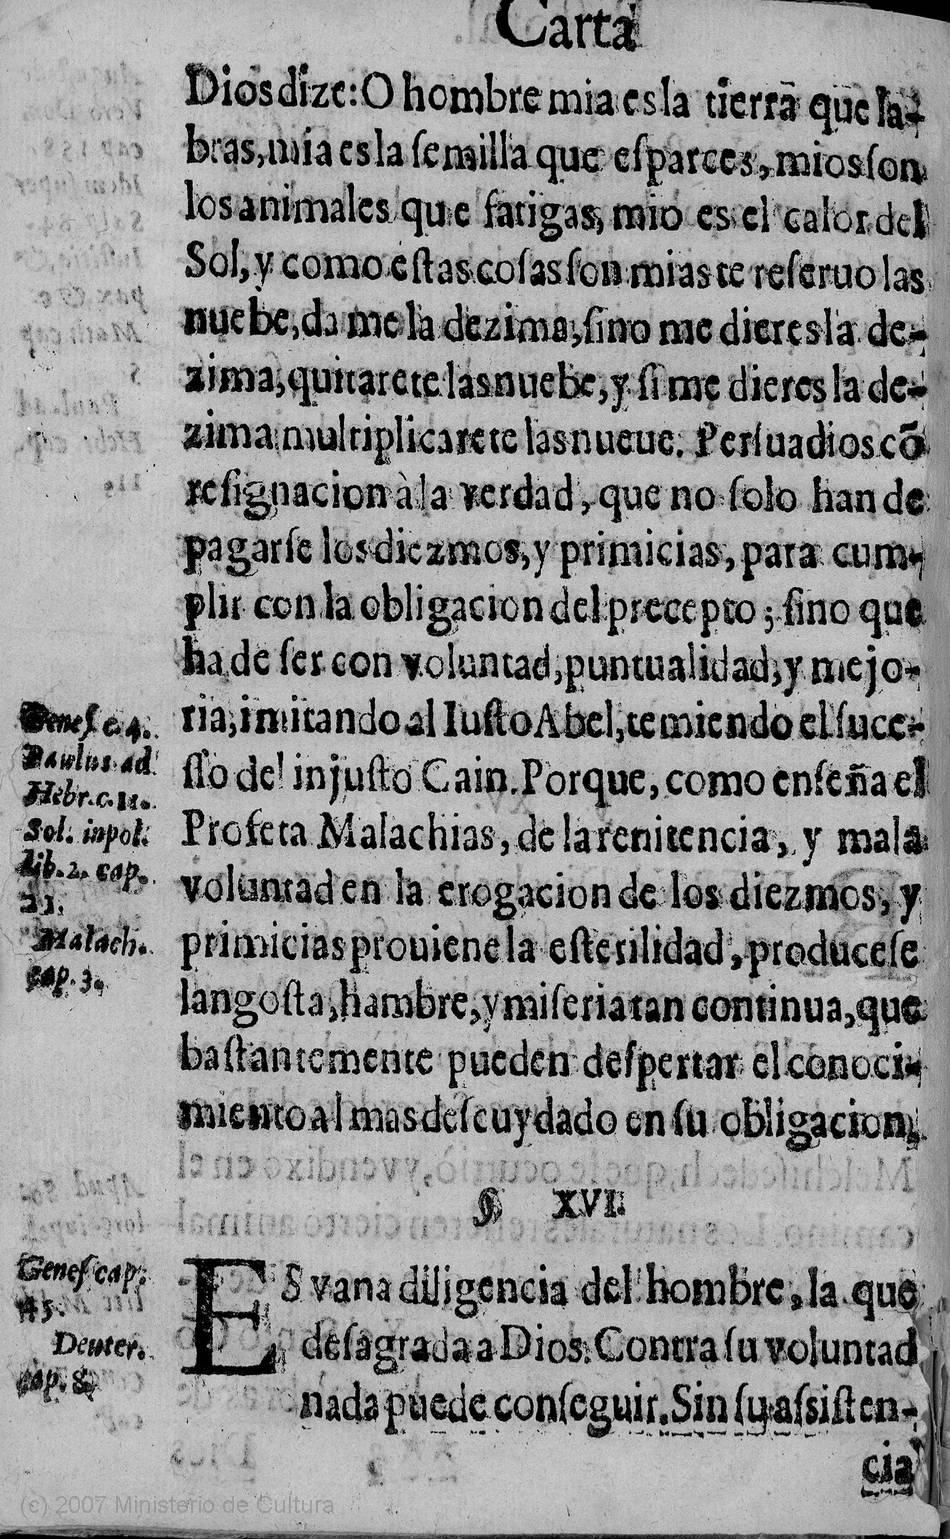 Carta
Dios dize: O hombre mia es la tierrā que la-
bras, mia es la semilla que esparces, mios son
los animales que fatigas, mio es el calor del
Sol, y como estas cosas son mias te reseruo las
nuebe, da me la dezima; sino me dieres la de-
zima, quitarete las nuebe, y si me dieres la de-
zima multiplicarete las nueue. Persuadios cō
resignacion à la verdad, que no solo han de
pagarse los diezmos, y primicias, para cum-
plir con la obligacion del precepto; sino que
ha de ser con voluntad, puntualidad, y mejo-
ria, imitando al Iusto Abel, temiendo el suce-
sso del injusto Cain. Porque, como enseña el
Profeta Malachias, de la renitencia, y mala
voluntad en la erogacion de los diezmos, y
primicias prouiene la esterilidad, producese
langosta, hambre, y miseria tan continua, que
bastantemente pueden despertar el conoci-
miento al mas descuydado en su obligacion.
Genes c. 4.
Paulus ad
Hebr. c. 11.
Sol. in pol.
lib. 2. cap.
21.
Malach.
cap. 3.
§ XVI.
ES vana diligencia del hombre, la que
desagrada a Dios. Contra su voluntad
nada puede conseguir. Sin su assisten-
cia
Genes cap.
43.
Deuter.
cap. 8.
(c) 2007 Ministerio de Cultura